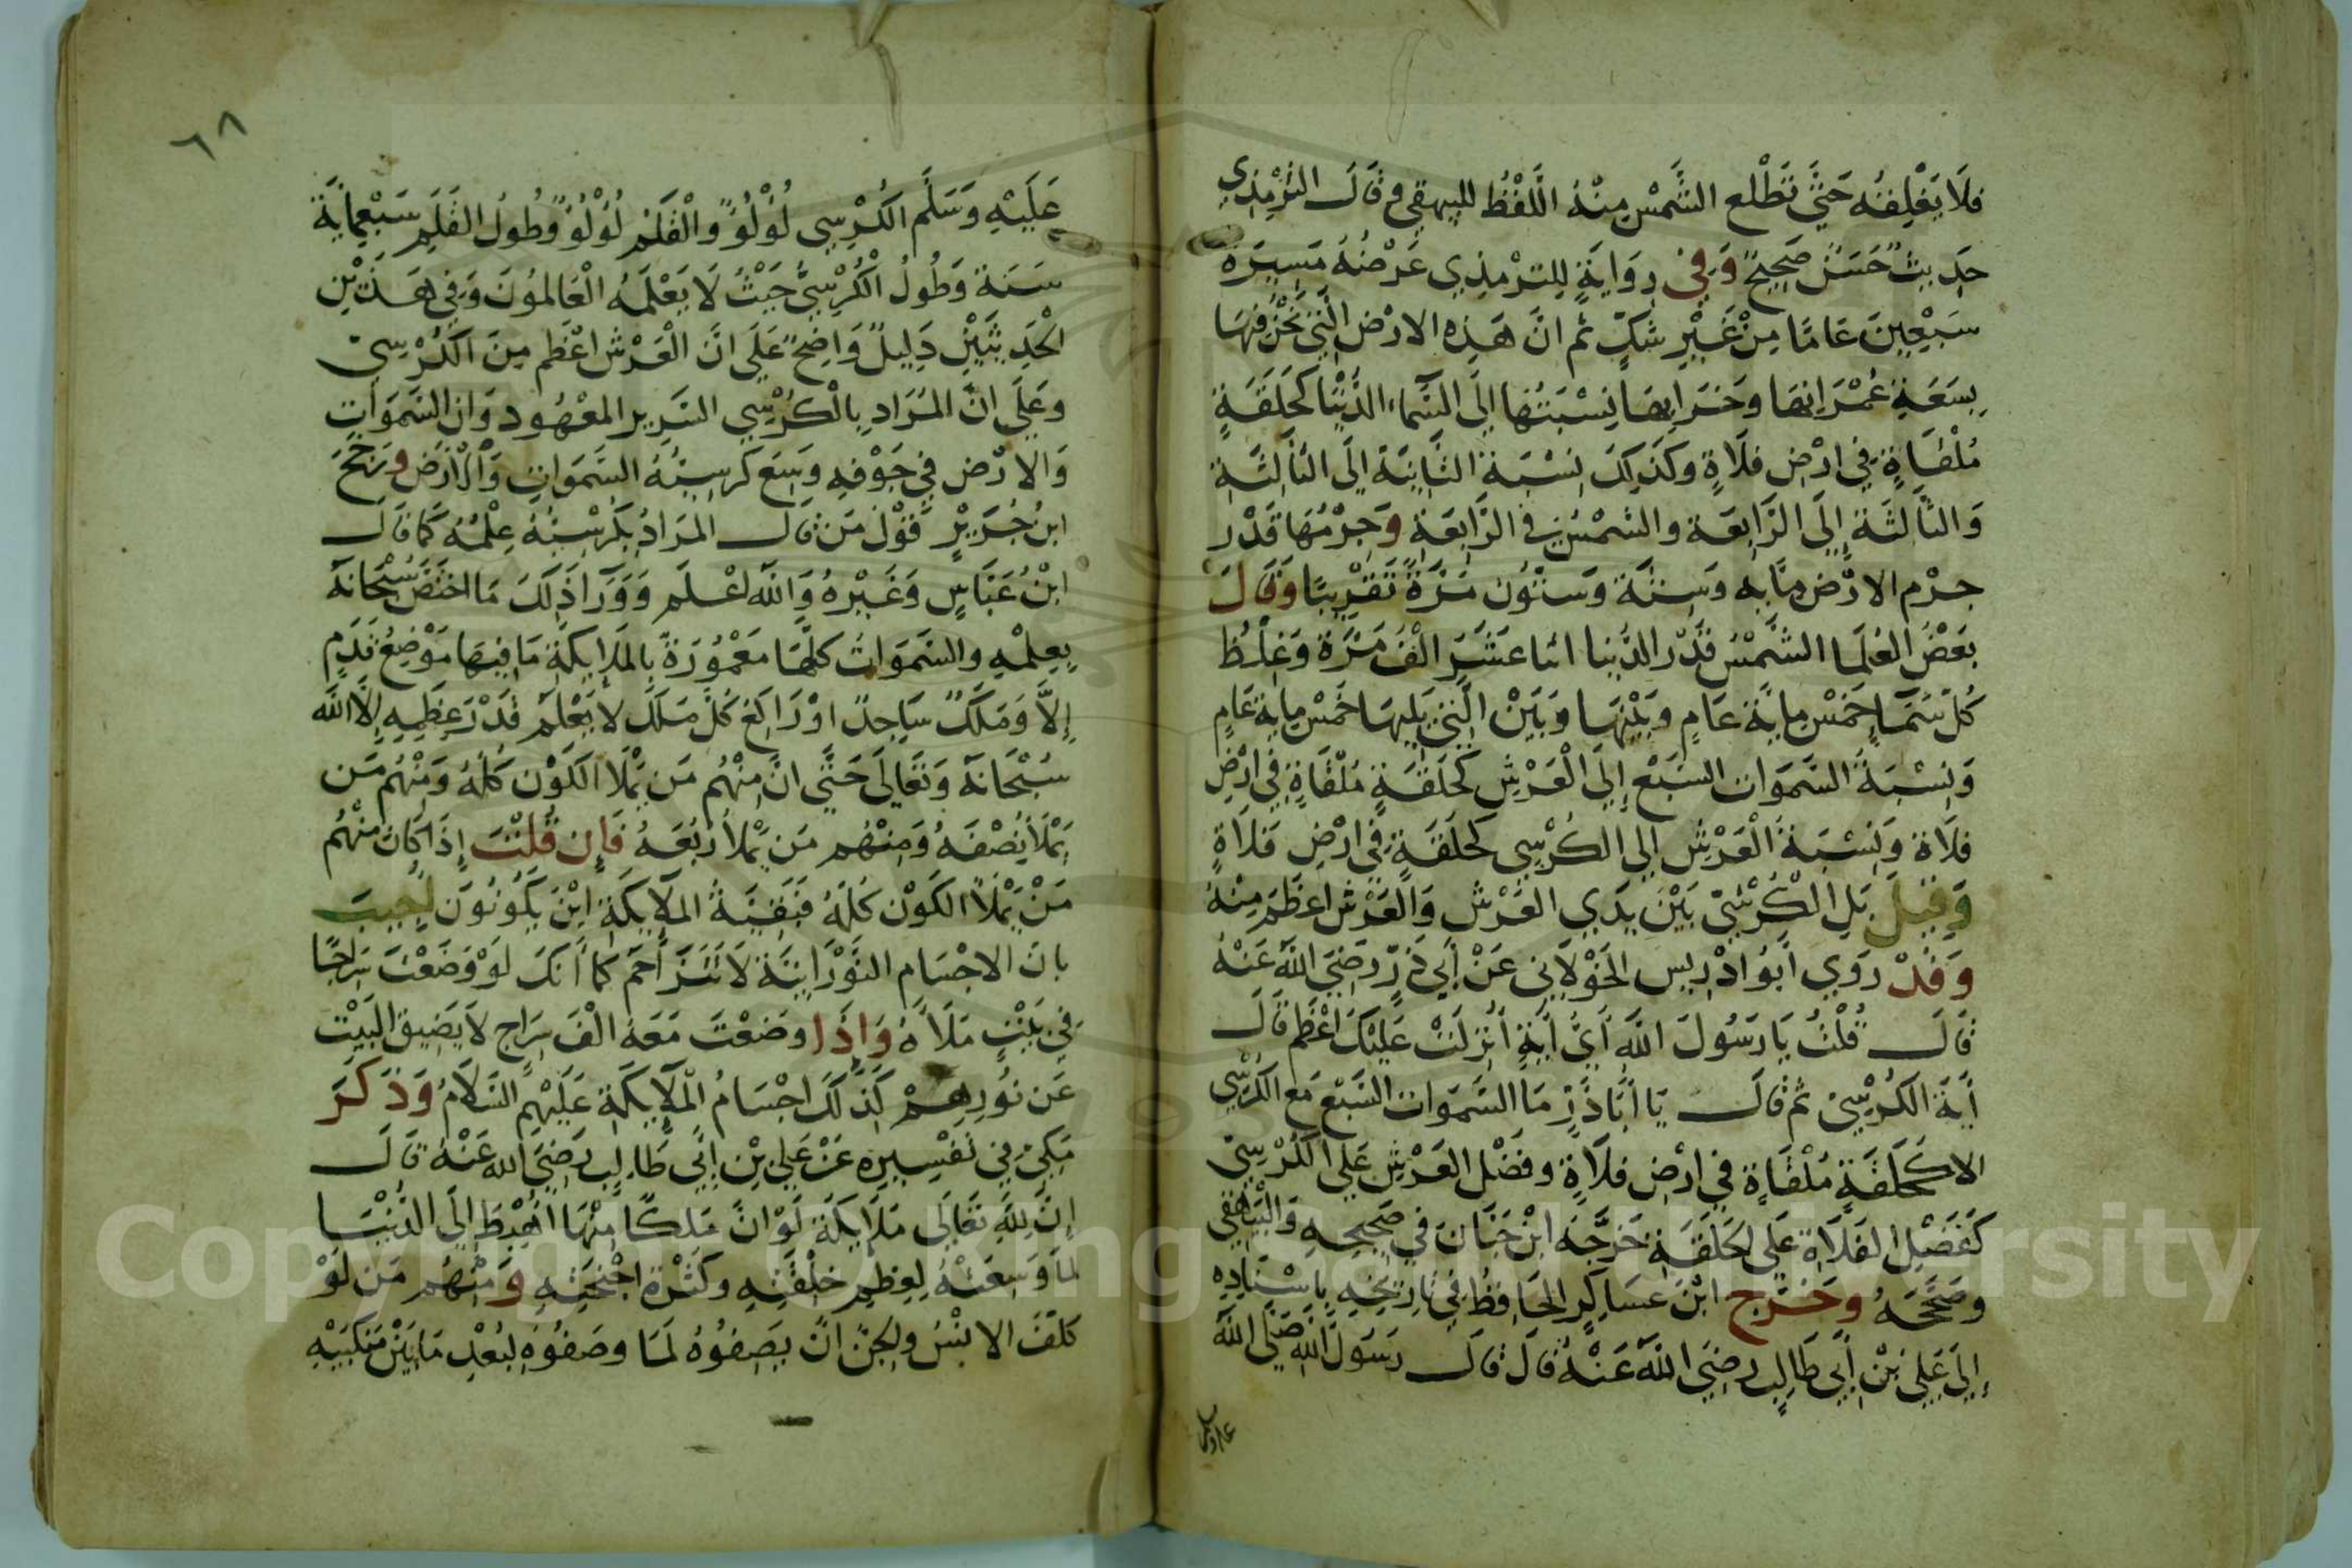 فلَا يَغْلِقُه حَتَّي تَطْلُع الشَّمْس مِنْهُ اللَّفْظُ للبيهقي وقَالَ التِّرْمِذِي
حَدِيثٌ حَسَنٌ صَحِيحٌ وَفِي رِوَايَةٍ لِلتِرْمِذِي عَرْضُهُ مَسِيَرَةُ
سَبْعِينَ عَامًا مِنْ غَيْرِ شَكٍّ ثم انَّ هَذِهِ الارْضَ الَّتِي نَحْنُ فِيهَا
بِسَعَةِ عُمْرَانِهَا وخَرَابِهَا نِسْبَتُهَا إلَى السَّمَاءِ الدُّنْيَا كَحَلَقَةٍ
مُلْقَاةٍ فِي ارْضِ فلَاةٍ وكَذَلِكَ نِسْبَة الثَّانِيَة إلَى الثَّالِثَةِ
وَالثَّالِثَة إِلَى الرَّابِعَة والشَمْسُ في الرَّابِعَةِ وَجِرْمُهَا قَدْر
جرْم الارْض مِايه وَسِتَّة وَسِتُّون مَرَّةً تَقْرِيبًا وَقَالَ
بَعْضُ العُلَمَا الشَّمْسُ قَدْر الدُّنيا اثنا عَشَرَ الْفَ مَرَّة وَغِلْظُ
كُلّ سَمَاءٍ خَمْس مِايَة عَامٍ وبَيْنَهَا وَبَيْنَ الَّتِي يَلِيهَا خَمْس مِايةِ عَامٍ
وَنِسْبَةُ السَّمَوَات السَّبْع إلَى الْعَرْشِ كَحَلَقَةٍ مُلْقَاةٍ فِي ارْضِ
فلَاة وَنِسْبَة الْعَرْشِ إلى الكُرْسِي كَحَلَقَةٍ فِي ارْضِ فَلَاةٍ
وَقِيلَ بَلِ الْكُرْسِيّ بَيْنَ يَدَي العَرْشِ وَالْعَرْش اعْظَم مِنْهُ
وَقَدْ رَوَي أبُو ادْرِيس الخَوْلَانِي عَنْ أبِي ذَرٍّ رَضِيَ اللَّه عَنْهُ
قَالَ قُلْتُ يَا رَسُولَ اللَّهِ أيُّ أيَةٍ أُنْزِلَتْ عَلَيْكَ اعْظَم قَالَ
أيَة الكُرْسِيّ ثم قَالَ يَا أبَا ذَرٍّ مَا السَّمَوَات السَّبْع مَع الكُرْسِي
الا كَحَلَقَةٍ مُلْقَاةٍ فِي ارْضِ فلَاةٍ وفَضْل العَرْشِ عَلَى الكُرْسِيّ
كَفَضْلِ الفَلَاةِ عَلَى الحَلَقَةِ خَرَّجَهُ ابْن حِبَّان فِي صَحِيحِهِ وَالْبَيْهَقِي
وصَحَّحَهُ وخَرَّج ابْن عَسَاكِر الحَافِظُ فِي تَارِيخِهِ بِاسْنَادِهِ
إلَى عَلِي بْنِ أبِي طَالِبٍ رضِيَ اللَّهُ عَنْهُ قَالَ قَالَ رَسُولُ اللَّهِ صَلَّى اللَّهُ
عليه وسلم
٦٨
عَلَيْهِ وَسَلَّم الكُرْسِي لُوْلُوٌ والْقَلَم لُوْلُوٌ وطُولُ القَلَمِ سَبْعِمِايَةِ
سَنَة وَطُولُ الْكُرْسِيِّ حَيْثُ لَا يَعْلَمُه الْعَالِمُونَ وَفِي هَذَيْنِ
الْحَدِيثَيْنِ دَلِيلٌ وَاضِحٌ عَلَى انَّ الْعَرْش اعْظَم مِنَ الكُرْسِيّ
وعَلَى انَّ المُرَاد بِالْكُرْسِي السَّرِير المعْهُود وَان السَّمَوَاتِ
وَالارْض فِي جَوْفِهِ وَسِع كرسِيُّهُ السَّمَوَاتِ وَالْأَرْضَ ورَجَّحَ
ابنُ جُرَيْرٍ قَوْل مَن قَالَ المرَادُ بكرْسِيّهُ عِلْمُهُ كَمَا قَالَ
ابْنُ عَبَّاسٍ وَغَيْرهُ وَاللَّه اعْلَم وَوَرَا ذَلِكَ مَا اختَصَّ سُبْحَانهُ
بِعِلْمِهِ والسَّمَوَاتُ كلَّهَا مَعْمُورَةٌ بِالمَلَايِكَةِ مَا فِيهَا مَوْضِعُ قَدَمٍ
إِلَّا وَمَلَكٌ سَاجِدٌ اوْ رَاكِع كُلّ مَلَك لا يَعْلَم قَدْرَ عِظَمِهِ إلَّا اللَّه
سُبْحَانَهُ وَتَعَالَى حَتَّي انَّ مِنْهُم مَن يَمْلَا الكَوْن كلَّهُ وَمِنْهُم مَن
يَمْلَأُ نِصْفَهُ وَمِنْهُم مَن يَمْلأ رُبْعَهُ فَإِن قُلْتَ إذَا كَانَ مِنْهُم
مَنْ يَمْلَأ الكَوْن كُلَّهُ فَبَقِيَّةُ المَلَايِكَةِ ايْنَ يَكُونُونَ أُجِيبَ
بان الاجْسَام النُّوْرَانِيَّة لَا تَتَزَاحَم كَمَا أنكَ لَوْ وَضَعْتَ سِرَاجًا
فِي بَيْتٍ مَلَأهُ وَاذَا وضَعْتَ مَعَهُ الْفَ سِرَاج لَا يَضِيق البَيْت
عَن نُورِهِمْ كَذَلكَ اجْسَامُ الْمَلَايِكَةِ عَلَيْهِم السَّلَامُ وَذَكَرَ
مَكِّيّ فِي تَفْسِيرِهِ عَنْ عَلِي بْنِ أبِي طَالِبٍ رَضِيَ اللَّه عَنْهُ قَالَ
إنَّ لِلَّهِ تَعَالَى مَلَايِكَة لَوْ انَّ مَلَكًا مِنْهَا اهْبِطَ إلَى الدُّنْيَا
لَمَا وَسِعَتْهُ لِعِظَمِ خلْقَتِهِ وكَثْرَة اجْنِحَتِهِ وَمِنْهُم مَن لَوْ
كلّفَ الانْسُ ولجِنّ انّ يَصِفُوهُ لَمَا وصَفُوهُ لِبُعْدِ مَا بَيْنَ مَنكَبَيْهِ
Copyright © King Saud University